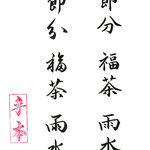 節分 福茶 雨水
節分 福茶 雨水